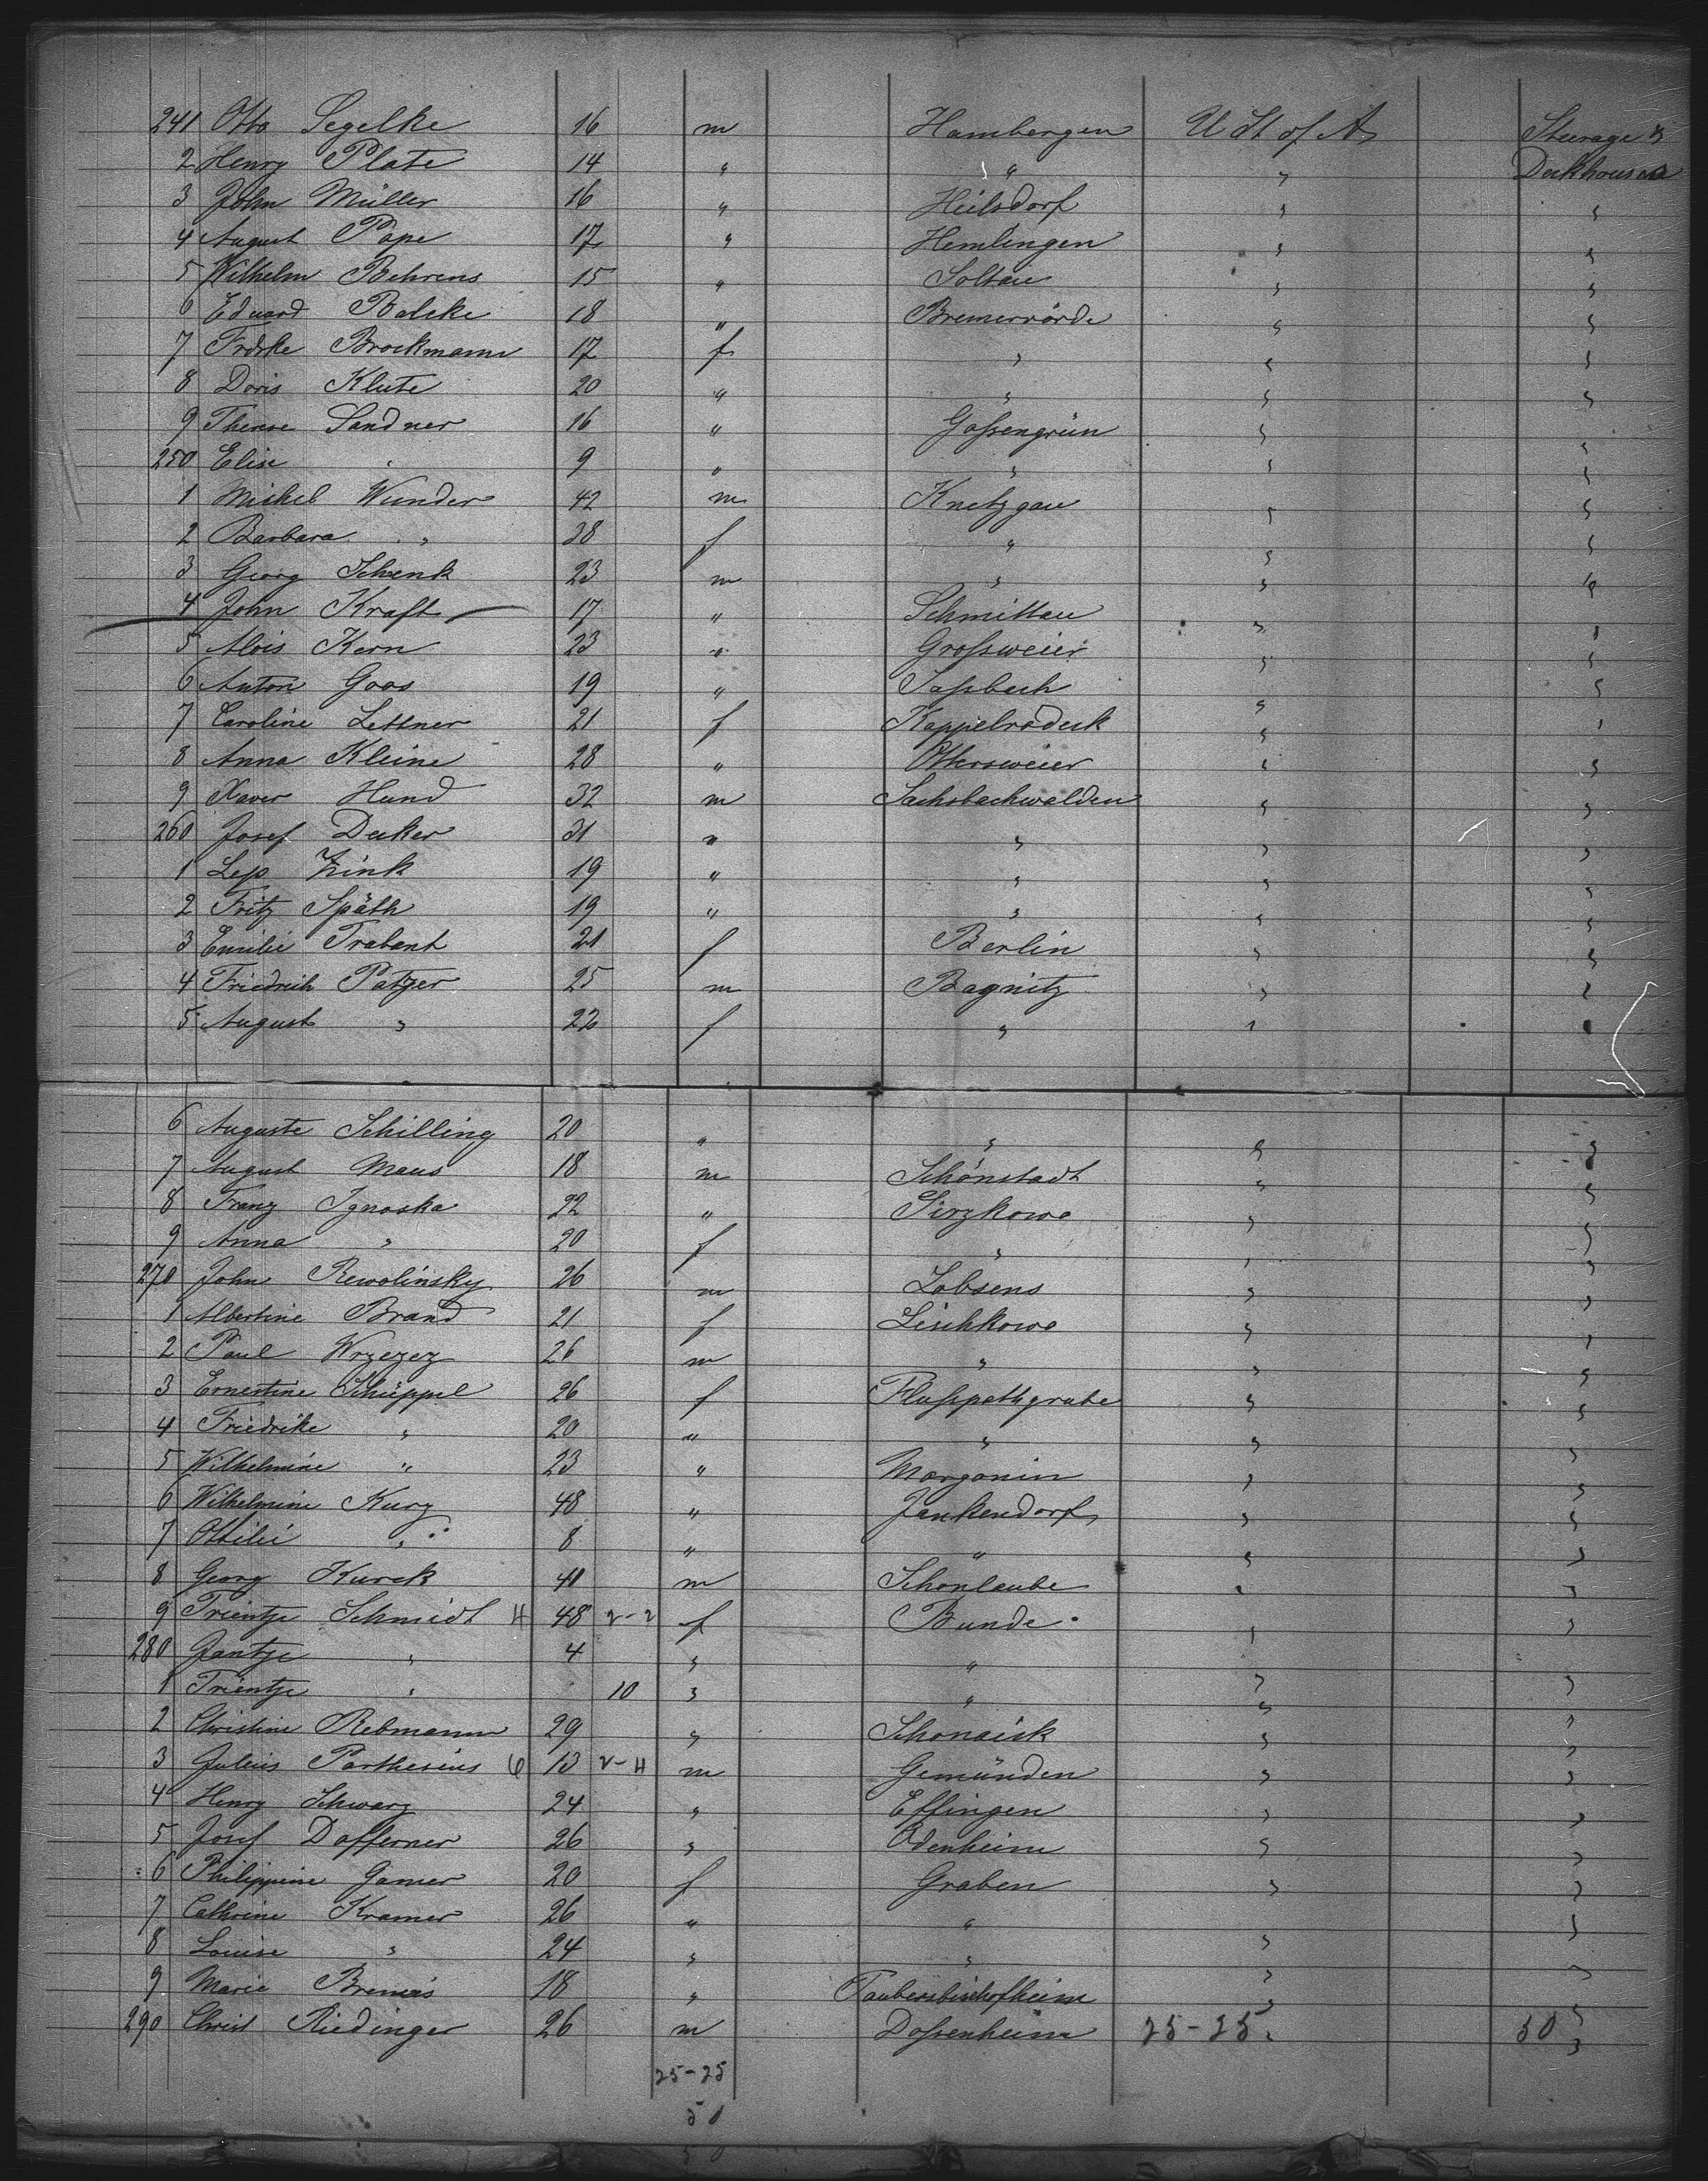 241 Otto Segelke 16 m Hambergen U St of A Steerage &
2 Henry Plate 14 " " " Deckhouse
3 John Müller 16 " Heilsdorf " "
4 August Pape 17 " Hemlingen " "
5 Wilhelm Behrens 15 " Soltau " "
6 Eduard Balcke 18 " Bremervörde " "
7 Frdrke Brockmann 17 f " " "
8 Doris Klute 20 " " " "
9 Therese Sandner 16 " Goßengrün " "
250 Elise " 9 " " " "
1 Michel Wunder 42 m Knetzgau " "
2 Barbara " 38 f " " "
3 Georg Schenk 23 m " " "
4 John Kraft 17 " Schmittau " "
5 Alois Kern 23 " Großweier " "
6 Anton Goos 19 " Saßbach " "
7 Caroline Lettner 21 f Kappelrodeck " "
8 Anna Kleine 28 " Ottersweier " "
9 Xaver Hund 32 m Sachsbachwalden " "
260 Josef Decker 31 " " " "
1 Leo Zink 19 " " " "
2 Fritz Späth 19 " " " "
3 Emilie Trabant 21 f Berlin " "
4 Friedrich Patzer 25 m Bagnitz " "
5 August " 22 f " " "
6 Auguste Schilling 20 " " " "
7 August Maus 18 m Schönstadt " "
8 Franz Ignaska 22 " Sirzkowo " "
9 Anna " 20 f " " "
270 John Rewolinsky 26 m Lobsens " "
1 Albertine Brand 21 f Lischkowo " "
2 Paul Wrzezez 26 m " " "
3 Ernestine Schüppel 26 f " "
4 Friedrike " 20 " " " "
5 Wilhelmine " 23 " Margonin " "
6 Wilhelmine Kurz 48 " Jankendorf " "
7 Ottilie " 8 " " " "
8 Georg Kurck 41 m Schonlanke " "
9 Trientje Schmidt H 48 2-2 f Bunde " "
280 Jantje " 4 " " " "
1 Trientje " 10 " " " "
2 Christine Rebmann 29 " Schonaich " "
3 Julius Parthesius 13 2-H m Gemünden " "
4 Henry Schwarz 24 " Effingen " "
5 Josef Dafferner 26 " Odenheim " "
6 Philippine Gamer 20 f Graben " "
7 Cathrine Kramer 26 " " " "
8 Louise " 24 " " " "
9 Marie 18 " Taubersbischofheim " "
290 Christ Riedinger 26 m Doßenheim 25-25 " 50 "
25-25
50